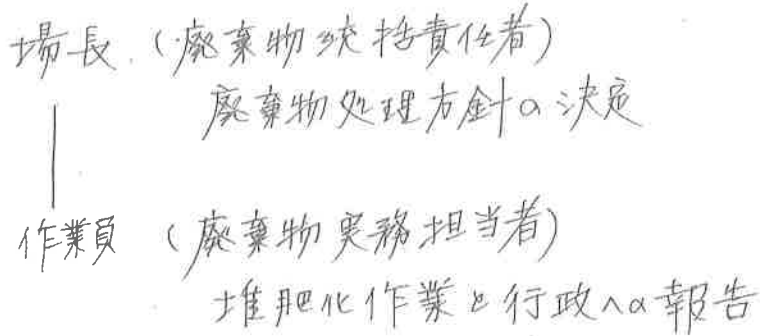 場長 (廃棄物統括責任者)
廃棄物処理方針の決定
作業員 (廃棄物実務担当者)
堆肥化作業と行政への報告